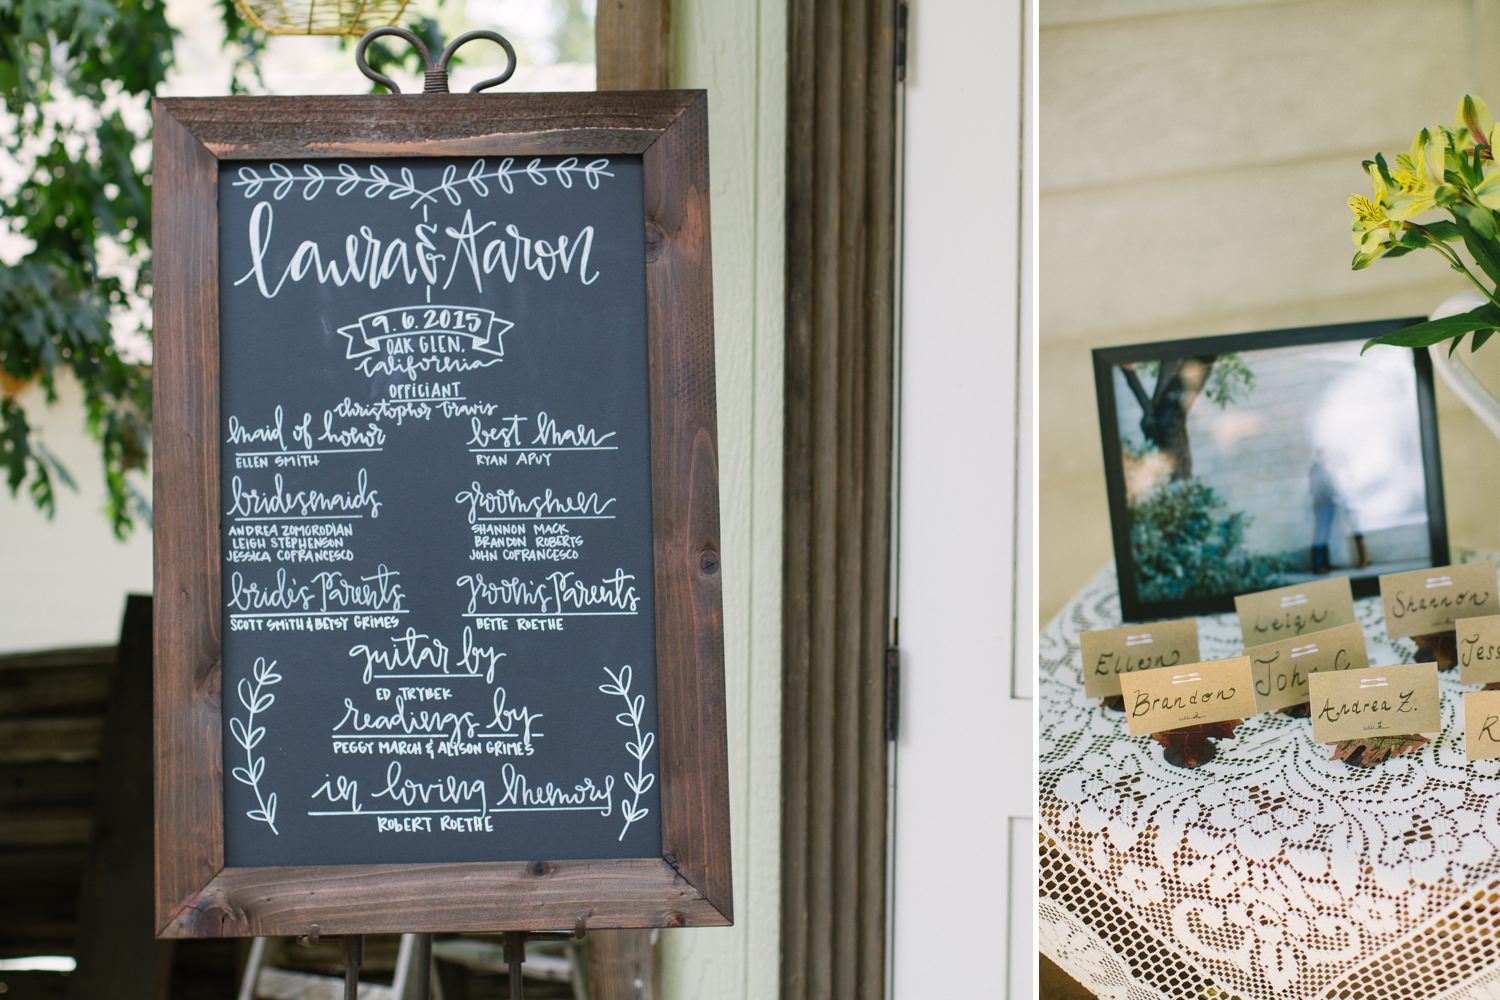 Laura & Aaron
9.6.2015
OAK GLEN,
California
OFFICIANT
Christopher Travis
maid of honor
ELLEN SMITH
best man
RYAN APUY
bridesmaids
ANDREA ZOMORODIAN
LEIGH STEPHENSON
JESSICA COFRANCESCO
groomsmen
SHANNON MACK
BRANDON ROBERTS
JOHN COFRANCESCO
bride's Parents
SCOTT SMITH & BETSY GRIMES
groom's Parents
BETTE ROETHE
guitar by
ED TRYBEK
readings by
PEGGY MARCH & ALYSON GRIMES
in loving memory
ROBERT ROETHE
Leigh
Shannon
Ellen
John C.
Jess
Brandon
Andrea Z.
R